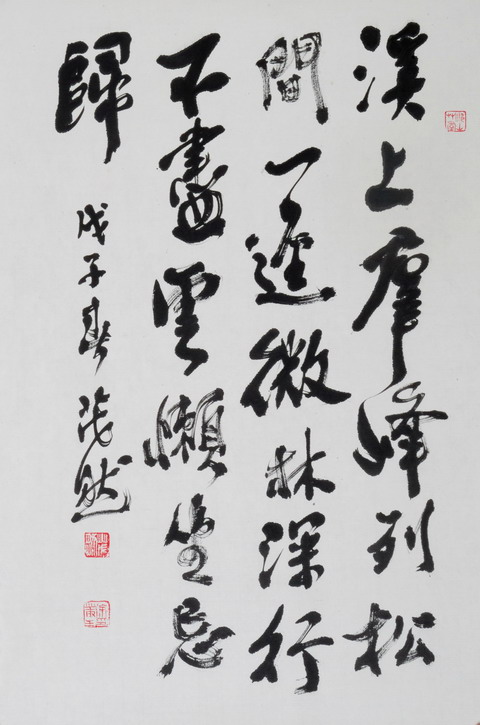 溪上群峰列松
間一逕微林深行
不盡雲懶坐忘
歸
戊子春茂然